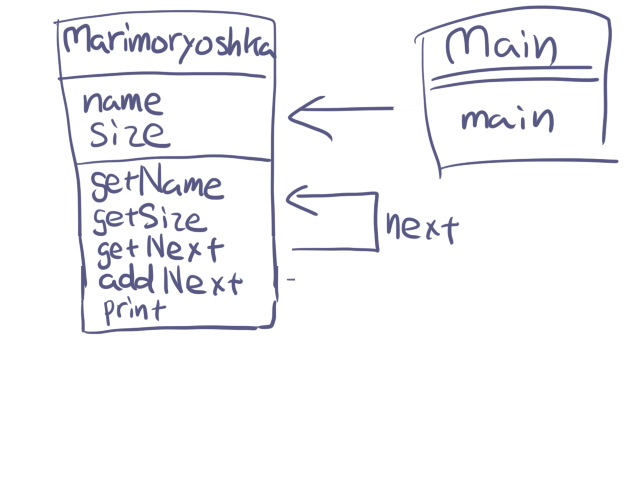 Marimoryoshka
name
size
getName
getSize
getNext
addNext
print
next
Main
main